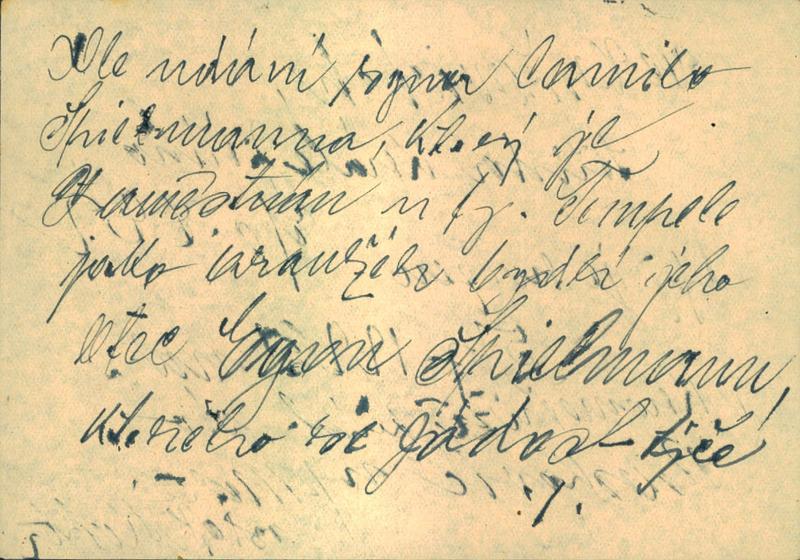 Dle udání syna Camilo
Spielmanna, který je
zaměstnán u fy. Timpele
jako aranžér bydlí jeho
otec Egon Spielmann,
kterého se žádost týče